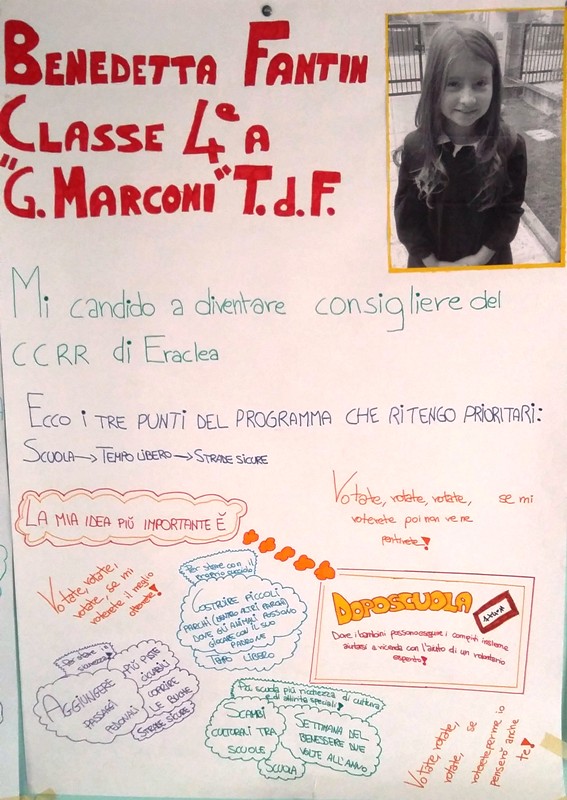 BENEDETTA FANTIN
CLASSE 4ª A
"G. MARCONI" T.d.F.
Mi candido a diventare consigliere del
CCRR di Eraclea
ECCO I TRE PUNTI DEL PROGRAMMA CHE RITENGO PRIORITARI:
SCUOLA → TEMPO LIBERO → STRADE SICURE
LA MIA IDEA PIÙ IMPORTANTE È
Votate, votate, votate, se mi
voterete poi non ve ne
pentirete!
DOPOSCUOLA
Dove i bambini possono eseguire i compiti insieme
aiutarsi a vicenda con l'aiuto di un volontario
esperto!
Votate, votate,
votate, se mi
voterete il meglio
otterrete!
Per stare con il
proprio cucciolo
COSTRUIRE PICCOLI
PARCHI (DENTRO ALTRI PARCHI)
DOVE GLI ANIMALI POSSONO
GIOCARE CON IL SUO
PADRONE
TEMPO LIBERO
Per stare in
sicurezza!
AGGIUNGERE
PASSAGGI
PEDONALI
PIÙ PISTE
CICLABILI
COPRIRE
LE BUCHE
STRADE SICURE!
Per scuola più ricchezza di cultura
e di attività speciali!
SCAMBI
CULTURALI TRA
SCUOLE
SETTIMANA DEL
BENESSERE DUE
VOLTE ALL'ANNO
SCUOLA
Votate, votate,
votate, se
voterete per me io
penserò anche
a te!